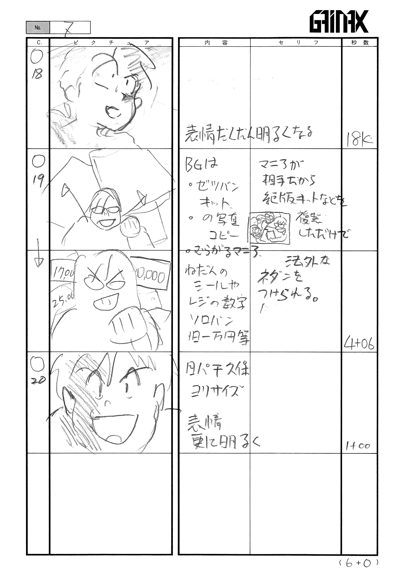 GAINAX
No. 7
C ピクチュア 内容 セリフ 秒数
18
表情だんだん明るくなる
18K
19
BGは
・ゼツバン
キット
・の写真
コピー
・むらがるマニア
ねだんの
シールや
レジの数字
ソロバン
旧一万円等
マニアが
相手だから
絶版キットなどを
復刻
しただけで
法外な
ネダンを
つけられる。
4+06
20
ヨリサイズ
表情
更に明るく
1+00
(6+0)